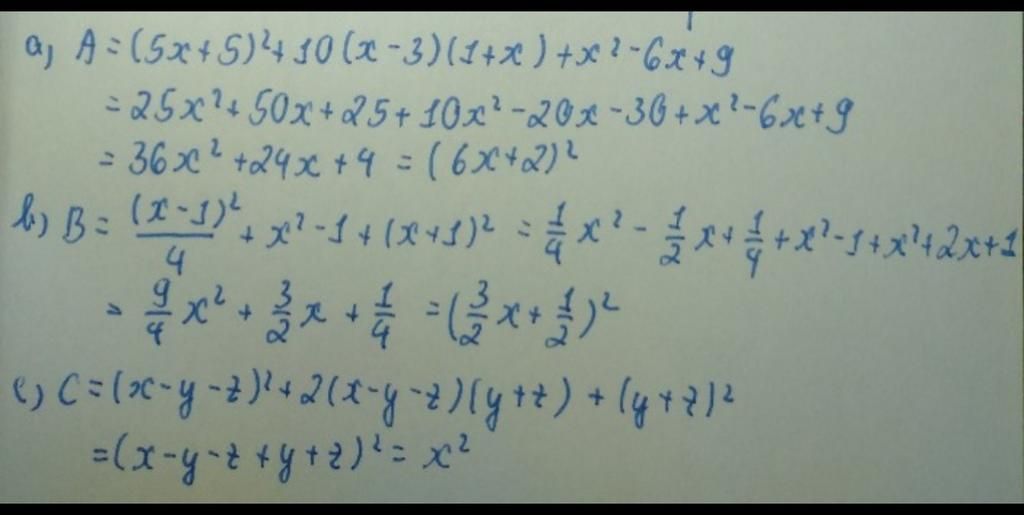 a) A = (5x+5)²+10(x-3)(1+x)+x²-6x+9
= 25x²+50x+25+10x²-20x-30+x²-6x+9
= 36x²+24x+4 = (6x+2)²
b) B = (x-1)²/4 + x²-1+(x+1)² = 1/4 x² - 1/2 x + 1/4 + x²-1+x²+2x+1
= 9/4 x² + 3/2 x + 1/4 = (3/2 x + 1/2)²
c) C = (x-y-z)²+2(x-y-z)(y+z)+(y+z)²
= (x-y-z+y+z)² = x²